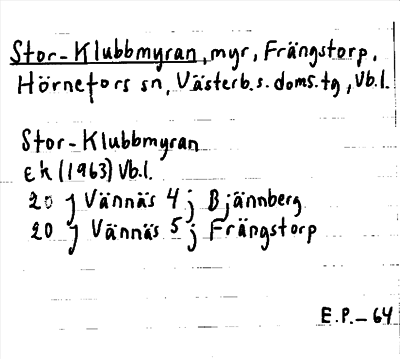 Stor-Klubbmyran, myr, Frängstorp,
Hörnefors sn, Västerb.s.doms.tg, Vb.l.
Stor-Klubbmyran
Ek (1963) Vb.l.
20 J Vännäs 4 j Bjännberg
20 J Vännäs 5 j Frängstorp
E.P.-64